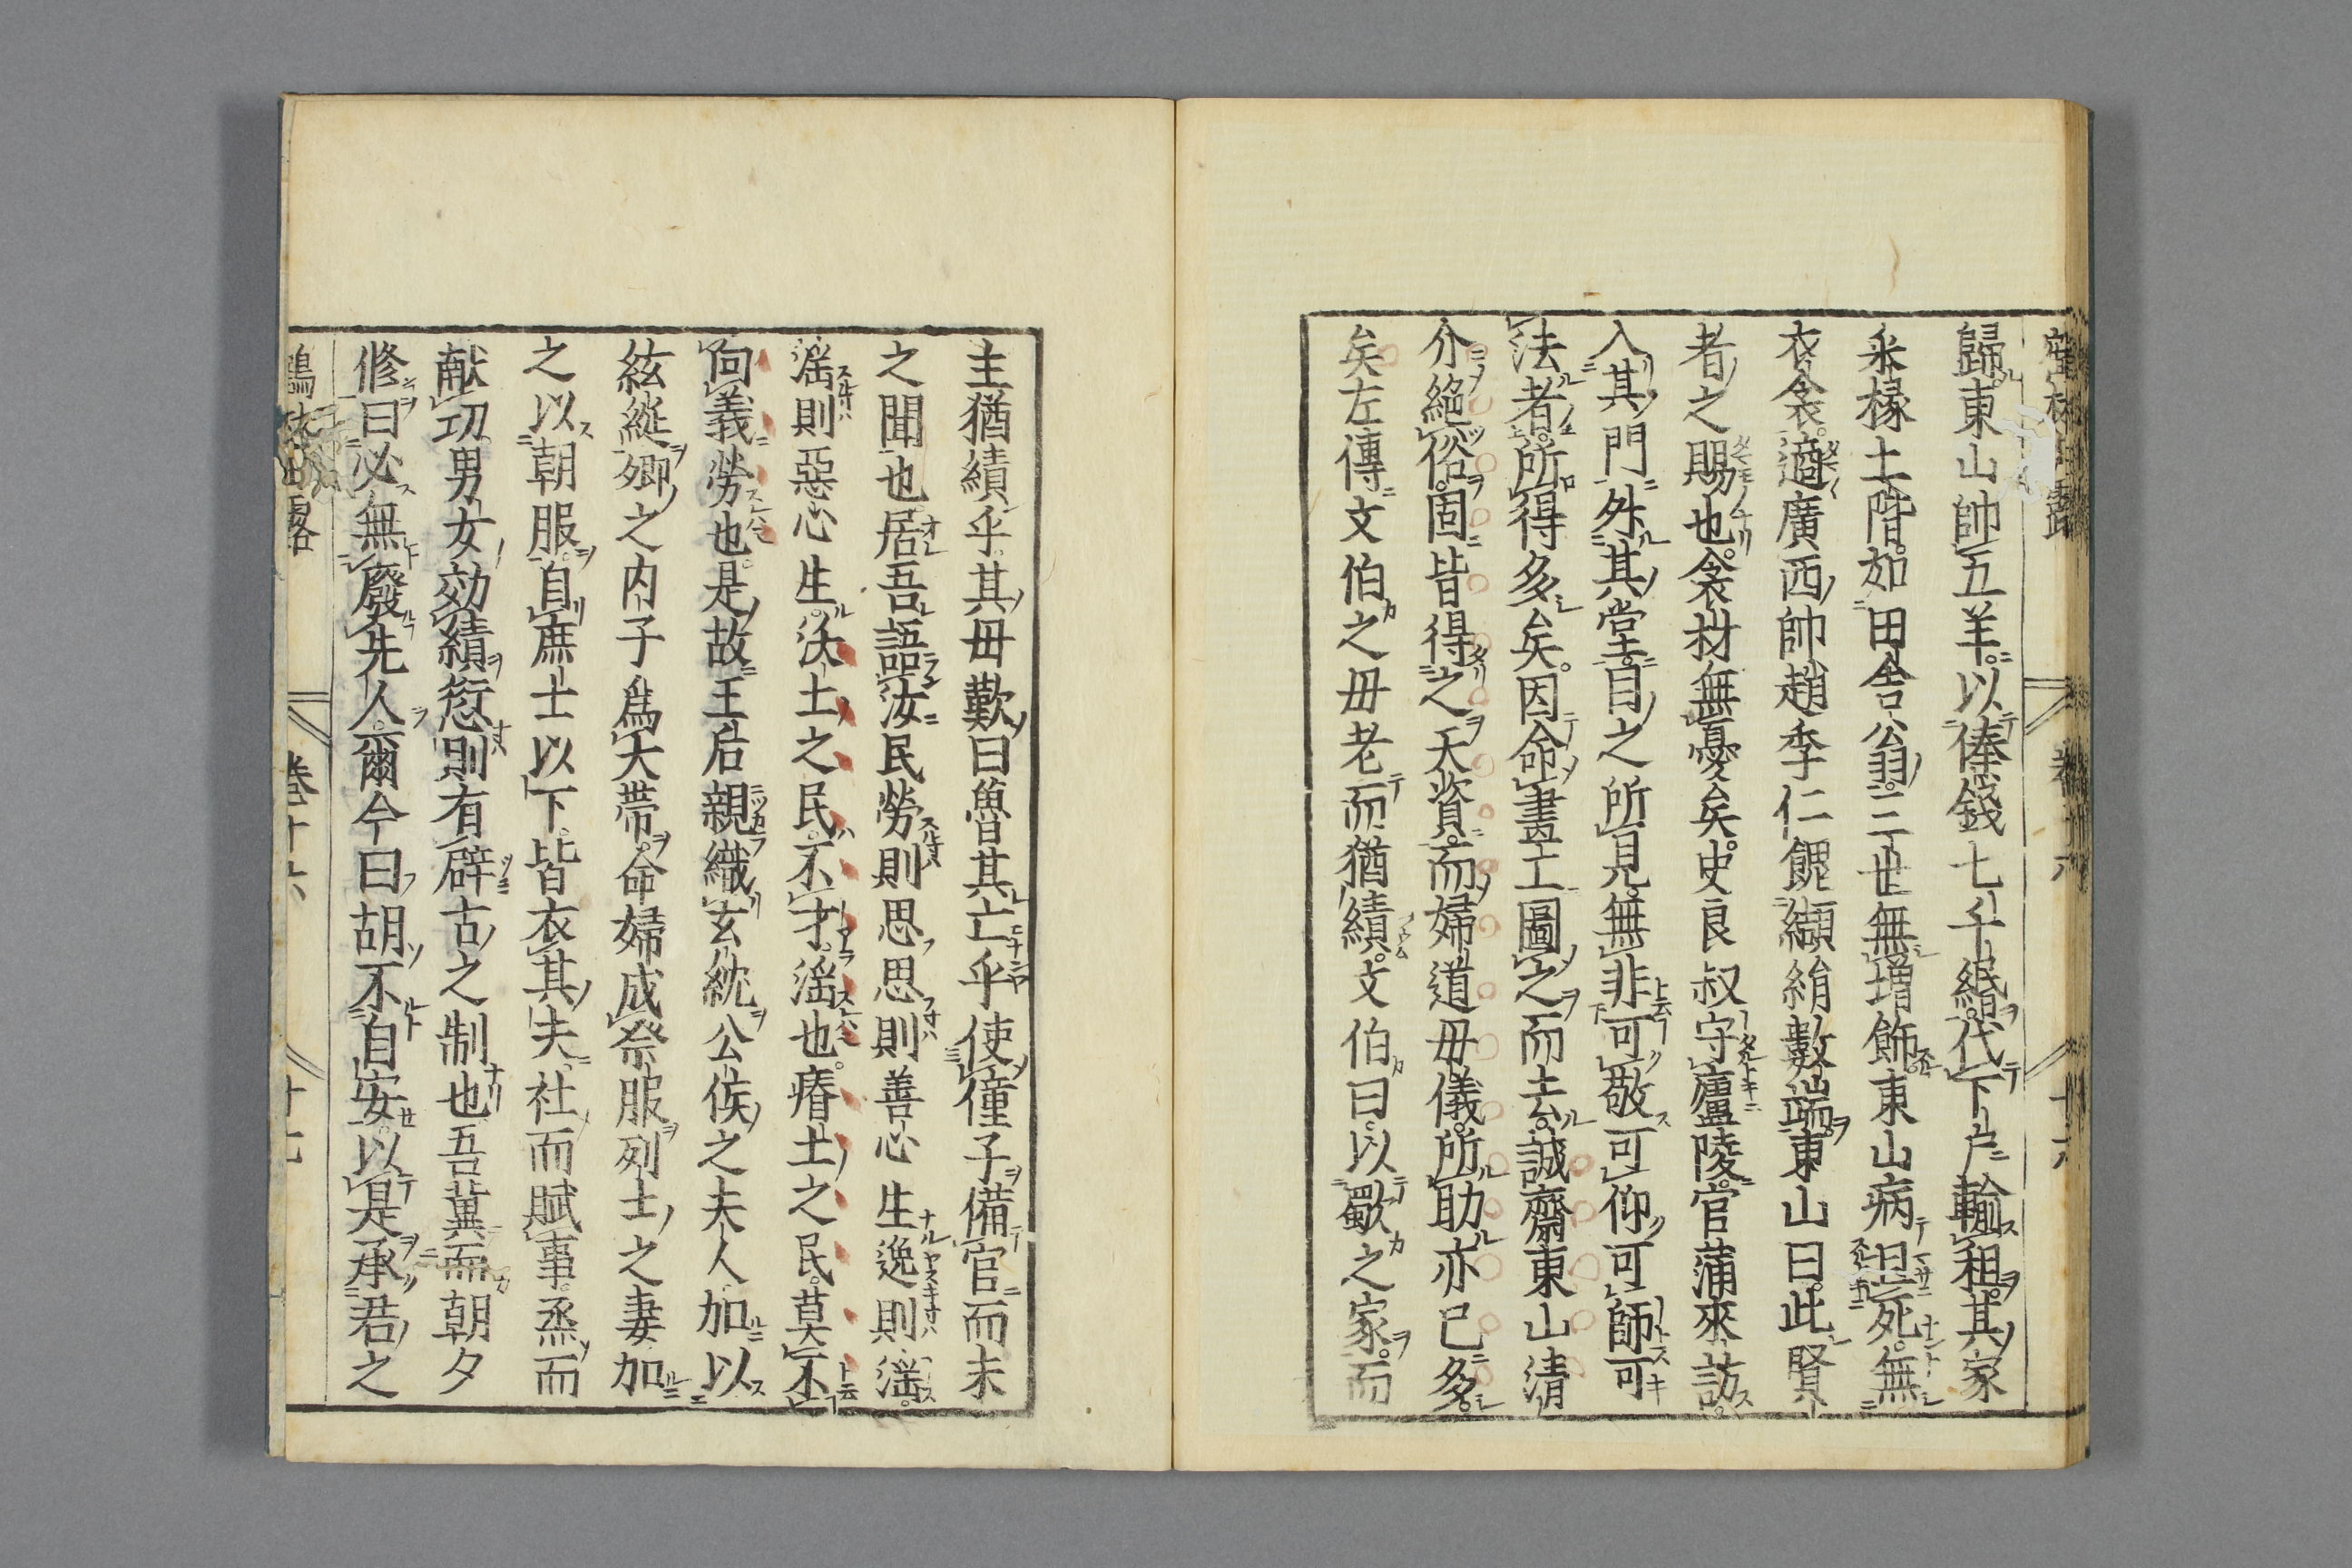 歸東山帥五羊以俸錢七千緡代下戶輸租其家
采椽土階如田舍翁三世無增飾東山病且死無
衣衾適廣西帥趙季仁餽纈絹數端東山曰此賢
者之賜也衾材無憂矣史良叔守廬陵官蒲來訪
入其門升其堂目之所見無非可敬可仰可師可
法者所得多矣因命畫工圖之而去誠齋東山清
介絕俗固皆得之天資而婦道母儀所助亦已多
矣左傳文伯之母老而猶績文伯曰以歜之家而
主猶績乎其母歎曰魯其亡乎使僮子備官而未
之聞也居吾語汝民勞則思思則善心生逸則滛
滛則惡心生沃土之民不才滛也瘠土之民莫不
向義勞也是故王后親織玄紞公侯之夫人加以
紘綖卿之內子爲大帶命婦成祭服列士之妻加
之以朝服自庶士以下皆衣其夫社而賦事烝而
献功男女効績愆則有辟古之制也吾冀而朝夕
修曰必無廢先人爾今曰胡不自安以是承君之
卷十六